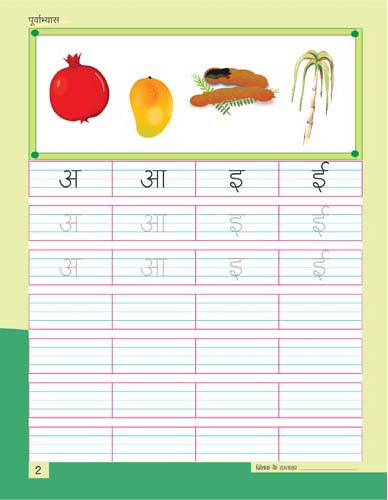 पूर्वाभ्यास
अ आ इ ई
अ आ इ ई
अ आ इ ई
2 शिक्षक के हस्ताक्षर